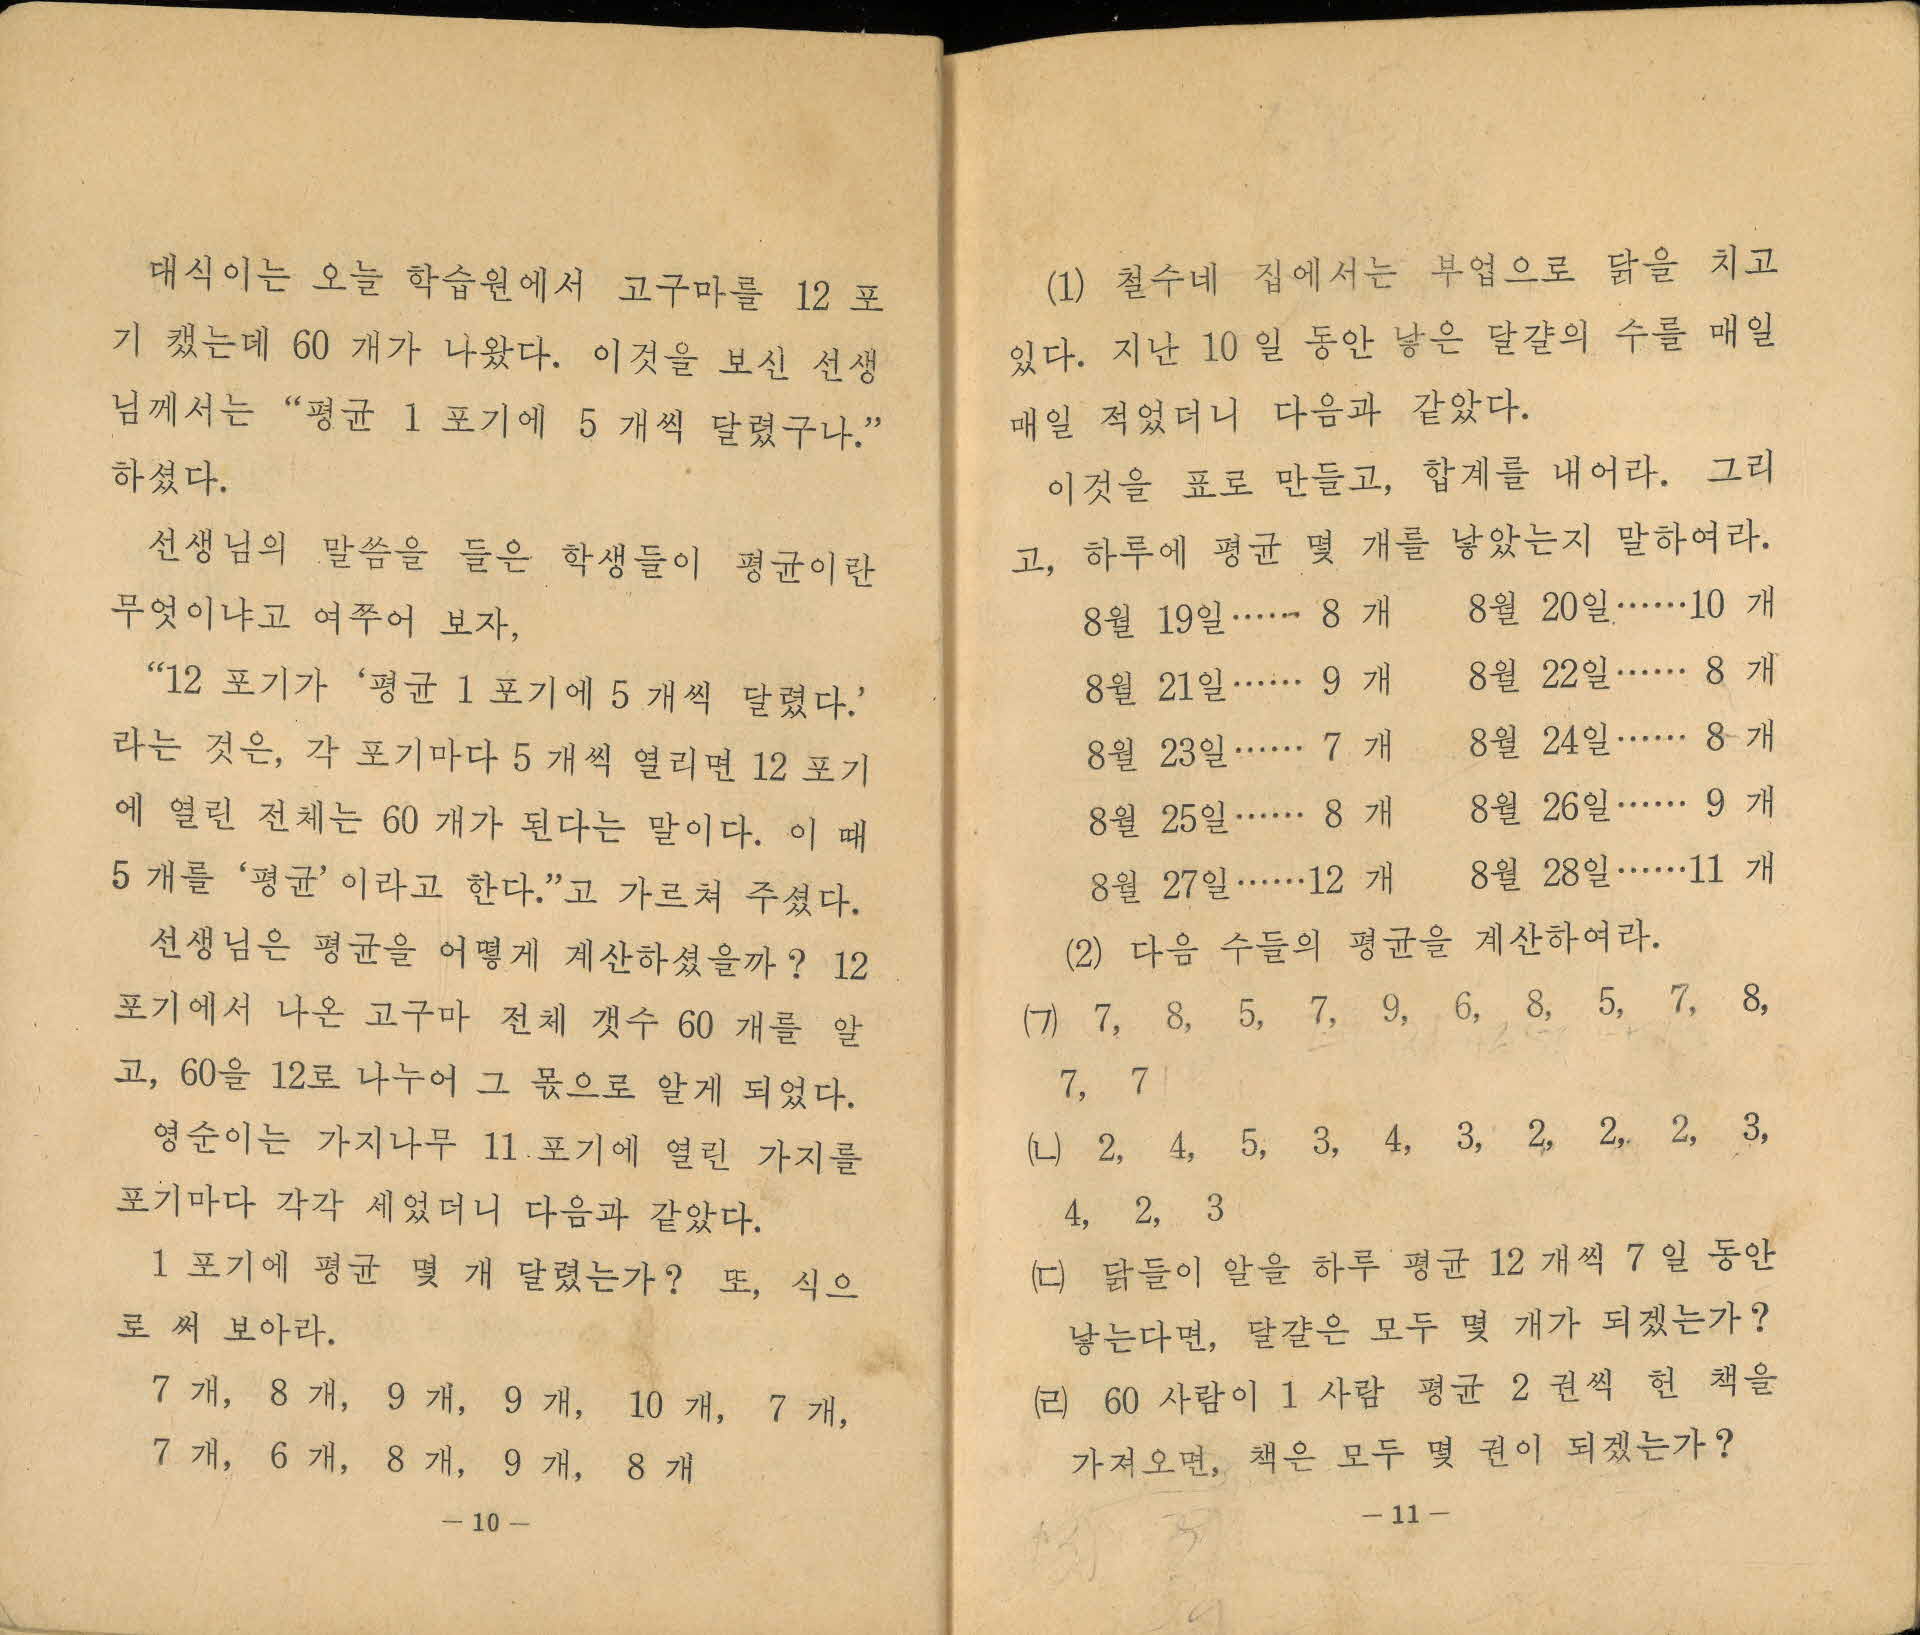 대식이는 오늘 학습원에서 고구마를 12 포
기 캤는데 60 개가 나왔다. 이것을 보신 선생
님께서는 “평균 1 포기에 5 개씩 달렸구나.”
하셨다.
선생님의 말씀을 들은 학생들이 평균이란
무엇이냐고 여쭈어 보자,
“12 포기가 ‘평균 1 포기에 5 개씩 달렸다.’
라는 것은, 각 포기마다 5 개씩 열리면 12 포기
에 열린 전체는 60 개가 된다는 말이다. 이 때
5 개를 ‘평균’이라고 한다.”고 가르쳐 주셨다.
선생님은 평균을 어떻게 계산하셨을까? 12
포기에서 나온 고구마 전체 갯수 60 개를 알
고, 60을 12로 나누어 그 몫으로 알게 되었다.
영순이는 가지나무 11 포기에 열린 가지를
포기마다 각각 세었더니 다음과 같았다.
1 포기에 평균 몇 개 달렸는가? 또, 식으
로 써 보아라.
7 개, 8 개, 9 개, 9 개, 10 개, 7 개,
7 개, 6 개, 8 개, 9 개, 8 개
— 10 —
(1) 철수네 집에서는 부업으로 닭을 치고
있다. 지난 10 일 동안 낳은 달걀의 수를 매일
매일 적었더니 다음과 같았다.
이것을 표로 만들고, 합계를 내어라. 그리
고, 하루에 평균 몇 개를 낳았는지 말하여라.
8월 19일…… 8 개 8월 20일……10 개
8월 21일…… 9 개 8월 22일…… 8 개
8월 23일…… 7 개 8월 24일…… 8 개
8월 25일…… 8 개 8월 26일…… 9 개
8월 27일……12 개 8월 28일……11 개
(2) 다음 수들의 평균을 계산하여라.
(ㄱ) 7, 8, 5, 7, 9, 6, 8, 5, 7, 8,
7, 7
(ㄴ) 2, 4, 5, 3, 4, 3, 2, 2, 2, 3,
4, 2, 3
(ㄷ) 닭들이 알을 하루 평균 12 개씩 7 일 동안
낳는다면, 달걀은 모두 몇 개가 되겠는가?
(ㄹ) 60 사람이 1 사람 평균 2 권씩 헌 책을
가져오면, 책은 모두 몇 권이 되겠는가?
— 11 —